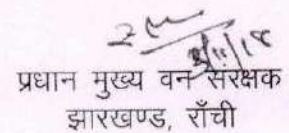 प्रधान मुख्य वन संरक्षक
झारखण्ड, राँची